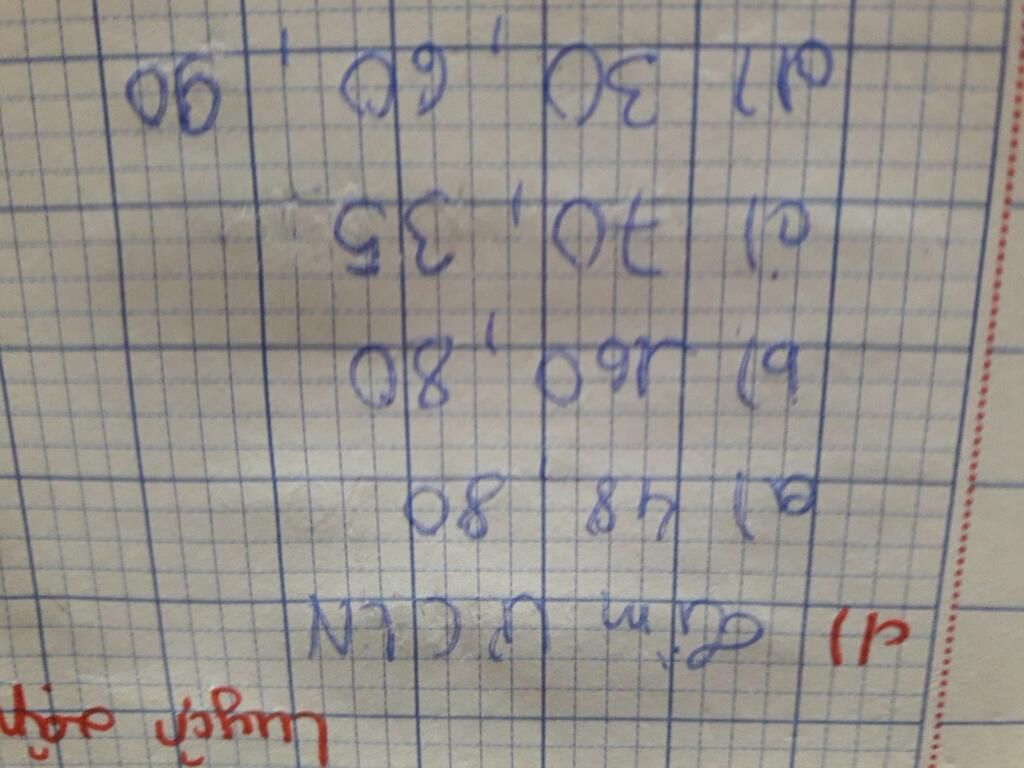 Luyện tập
1) Tìm ƯCLN
a) 48, 80
b) 160, 80
c) 70, 35
d) 30, 60, 90